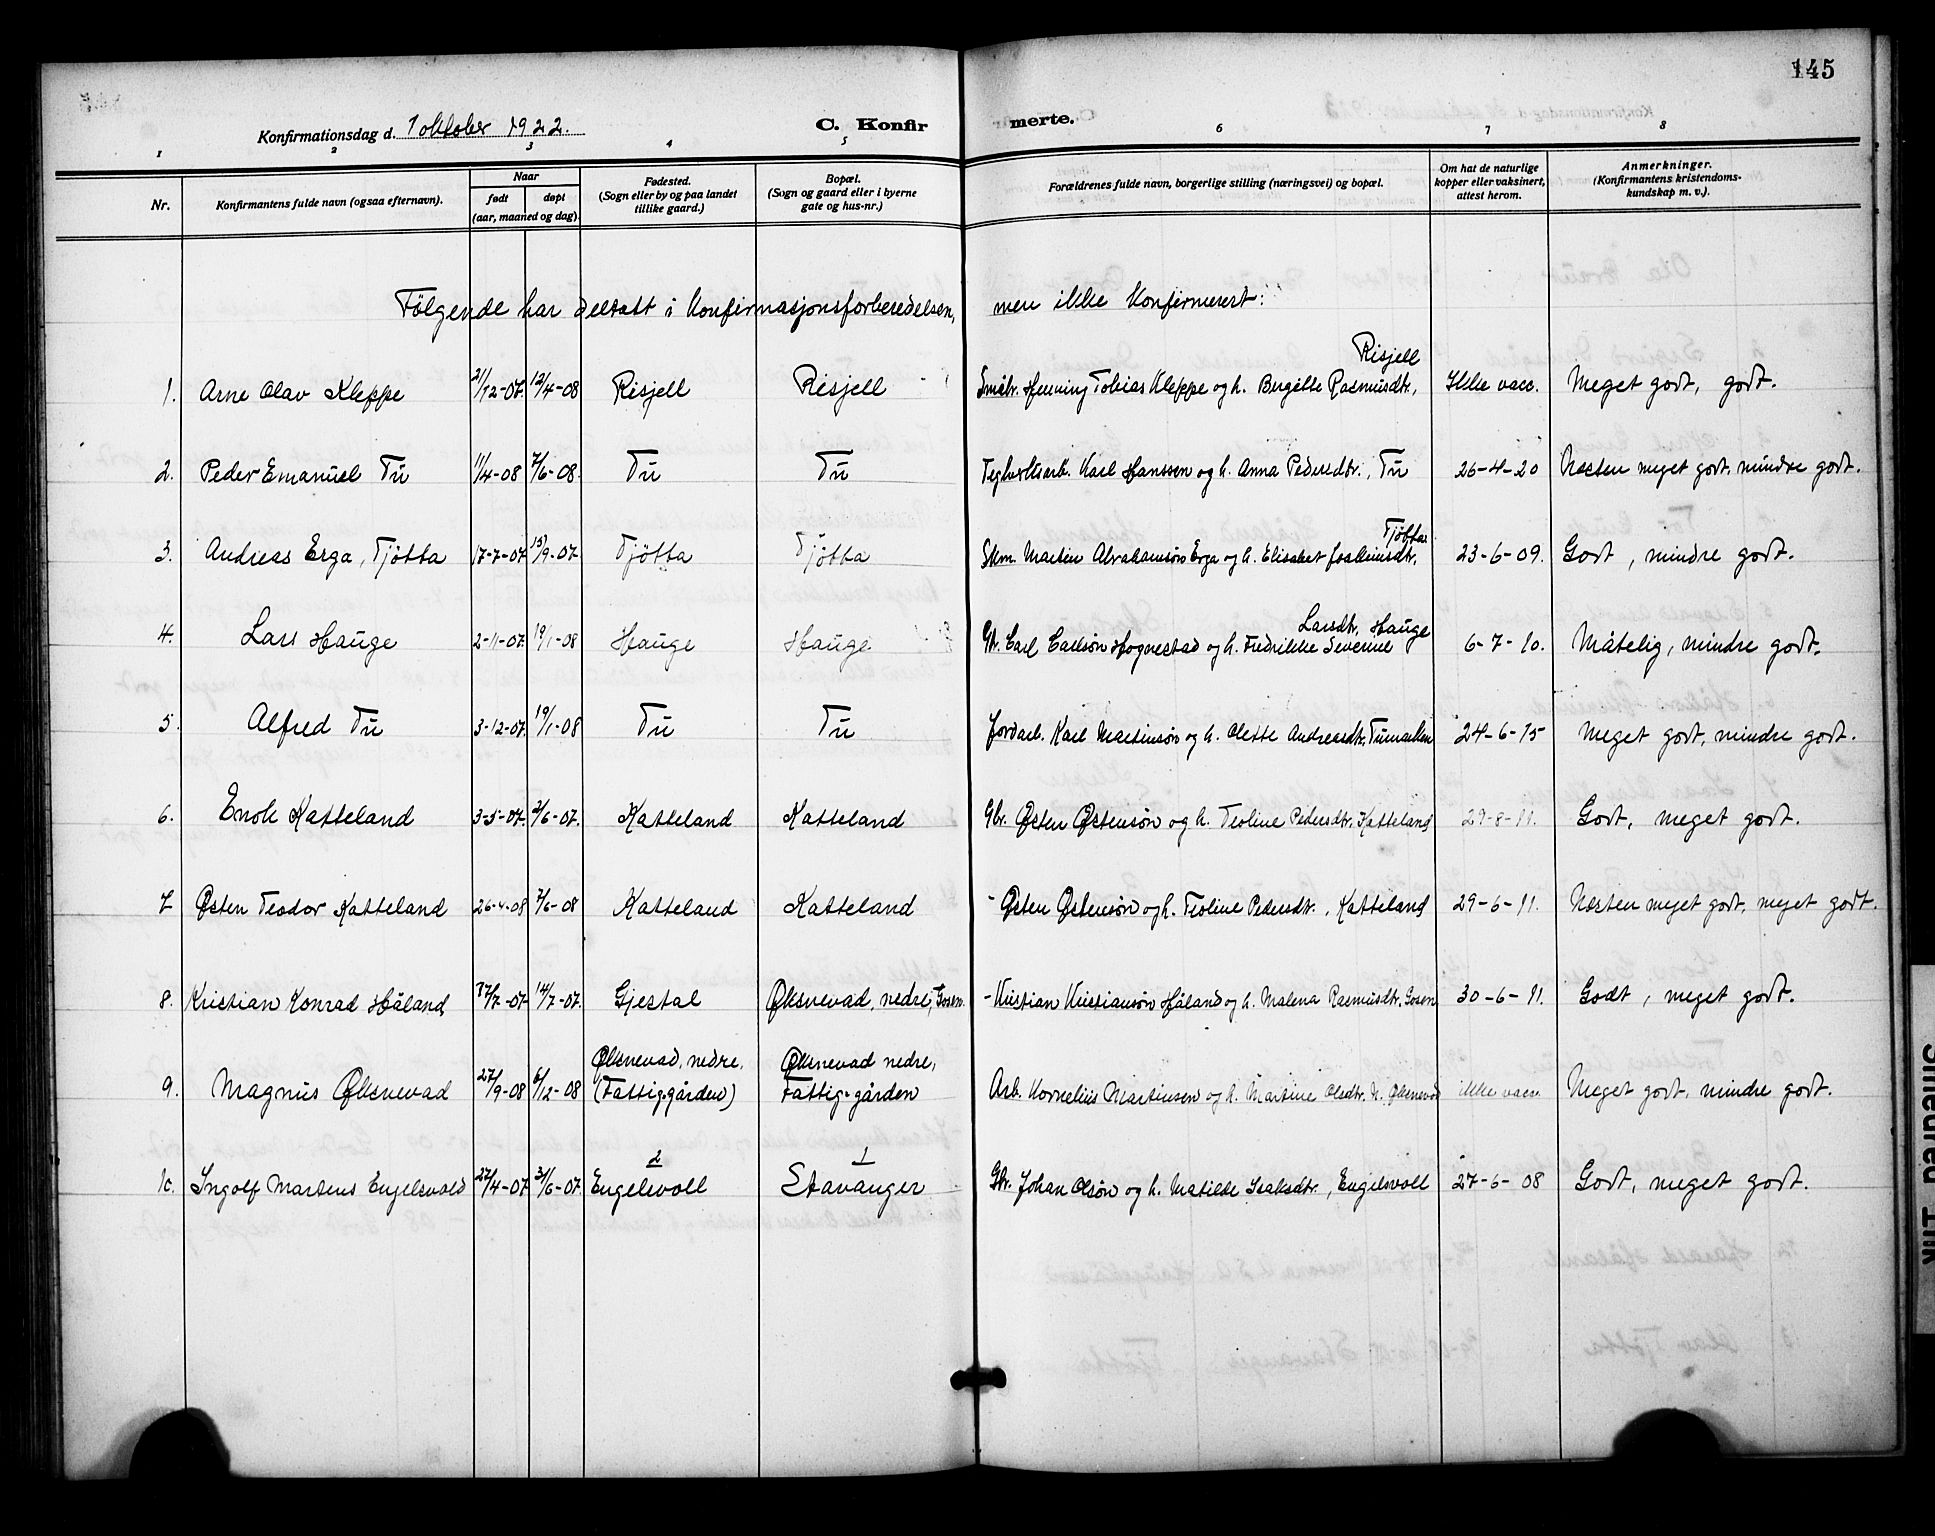 145
Konfirmationsdag d. 1 oktober 1922. C. Konfirmerte.
1 2 3 4 5 6 7 8
Nr. Konfirmantens fulde navn (ogsaa efternavn). Naar født døpt (aar, maaned og dag) Fødested. (Sogn eller by og paa landet tillike gaard.) Bopæl. (Sogn og gaard eller i byerne gate og hus-nr.) Forældrenes fulde navn, borgerlige stilling (næringsvei) og bopæl. Om hat de naturlige kopper eller vaksinert, attest herom. Anmerkninger. (Konfirmantens kristendomskundskap m. v.)
Følgende har deltatt i konfirmasjonsforberedelsen, men ikke konfirmert:
1. Arne Olav Kleppe 21/12-07. 12/4-08 Risjell Risjell Småbr. Henning Tobias Kleppe og h. Bergitte Rasmusdtr., Risjell Ikke vacc. Meget godt, godt.
2. Peder Emanuel Tu 11/4-08 7/6-08. Tu Tu Teglverksarb. Karl Hanssen og h. Anna Pedersdtr., Tu 26-4-20 Næsten meget godt, mindre godt.
3. Andreas Erga, Tjøtta 17-7-07. 15/9-07. Tjøtta Tjøtta Skm. Martin Abrahamsøn Erga og h. Elisabet Joakimsdtr., Tjøtta 23-6-09. Godt, mindre godt.
4. Lars Hauge 2-11-07. 19/1-08 Hauge Hauge Gbr. Carl Carlsøn Hognestad og h. Fredrikke Severine Larsdtr. Hauge 6-7-10. Måtelig, mindre godt.
5. Alfred Tu 3-12-07. 19/1-08 Tu Tu Jordarb. Karl Martinsøn og h. Olette Andreasdtr. Tumarken 24-6-15 Meget godt, mindre godt.
6. Enok Katteland 3-5-07. 2/6-07. Katteland Katteland Gbr. Østen Østensøn og h. Teoline Pedersdtr. Katteland 29-8-11. Godt, meget godt.
7 Østen Teodor Katteland 26-4-08 7/6-08 Katteland Katteland - Østen Østensøn og h. Teoline Pedersdtr., Katteland 29-6-11. Næsten meget godt, meget godt.
8. Kristian Konrad Håland /7-07 14/7-07. Gjestal Øksnevad, nedre, Gosen. - Kristian Kristiansøn Håland og h. Malena Rasmusdtr. Gosen 30-6-11. Godt, meget godt.
9. Magnus Øksnevad 27/9-08 6/12-08 Øksnevad, nedre. (Fattig-gården) Øksnevad nedre, Fattig-gården Arb. Kornelius Martinsen og h. Martine Olsdtr. N. Øksnevad ikke vacc. Meget godt, mindre godt.
10. Ingolf Martens Engelsvold 27/4-07. /6-07. 2 Engelsvoll 1 Stavanger Gbr. Johan Olsøn og h. Matilde Isaksdtr., Engelsvoll 27-6-08 Godt, meget godt.